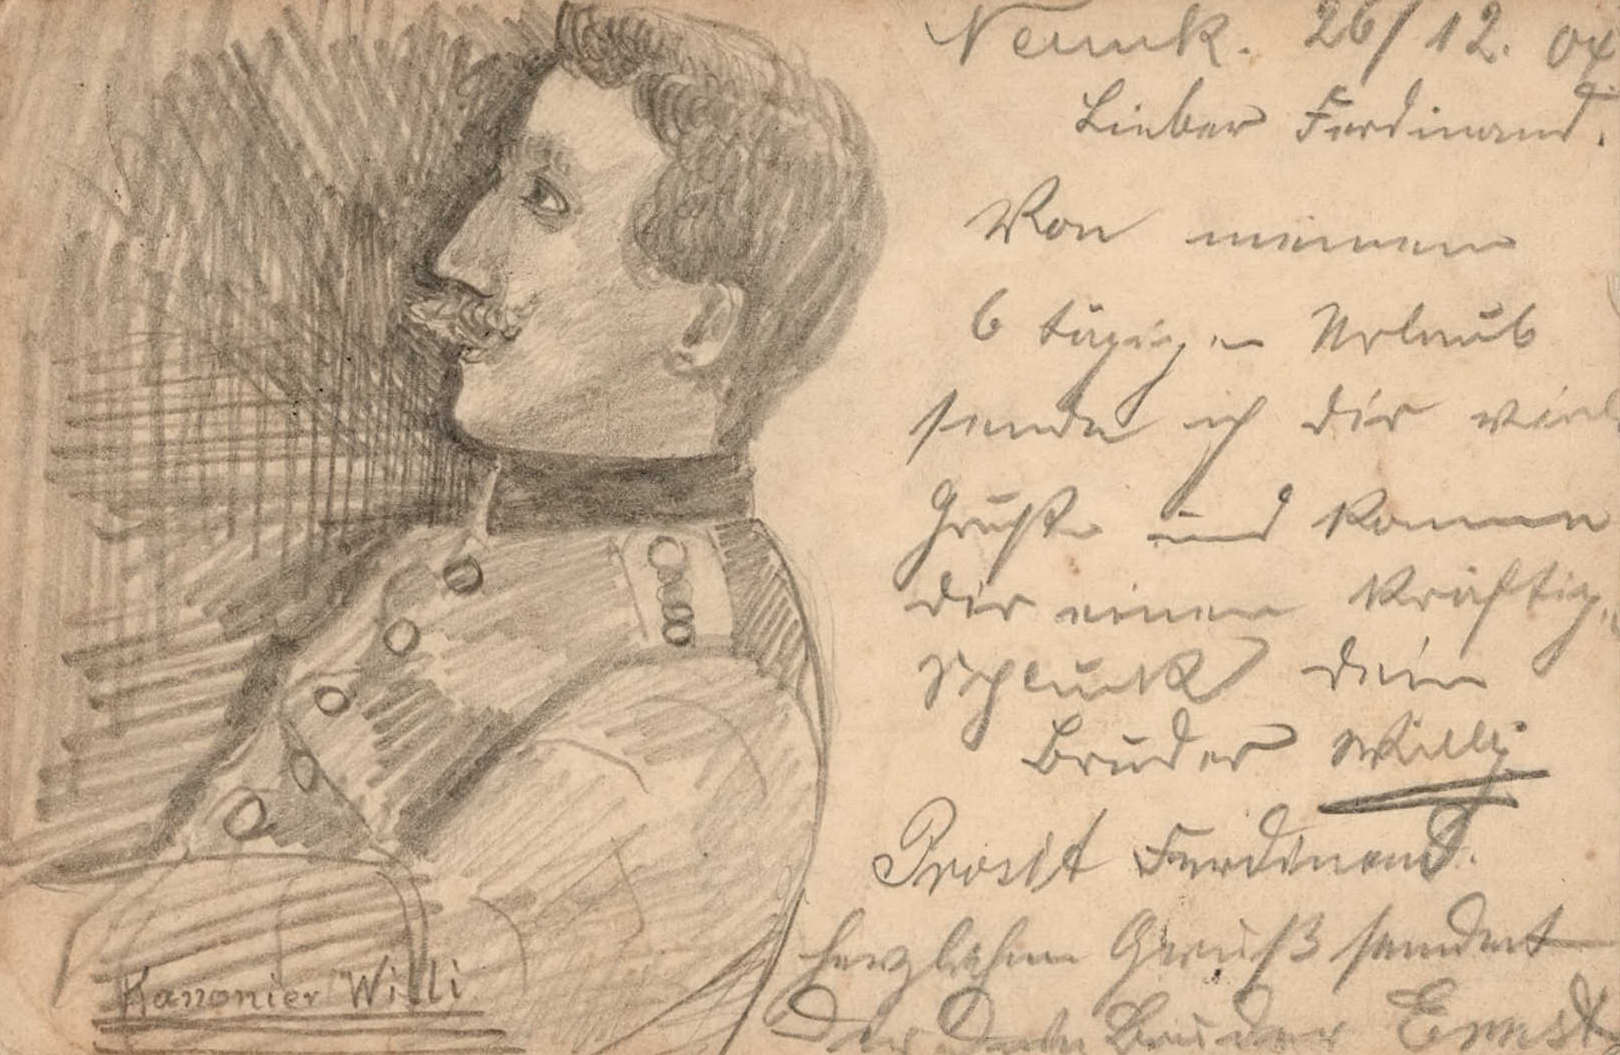 Neunk. 26/12. 04
Lieber Ferdinand.
Von meinem
6 tägigen Urlaub
sende ich dir viele
Grüße und komme
dir einen kräftig.
Schluck dein
Bruder Willy
Prosit Ferdinand.
herzlichen Gruß sendet
Dir Dein Bruder Ernst
Kanonier Willi